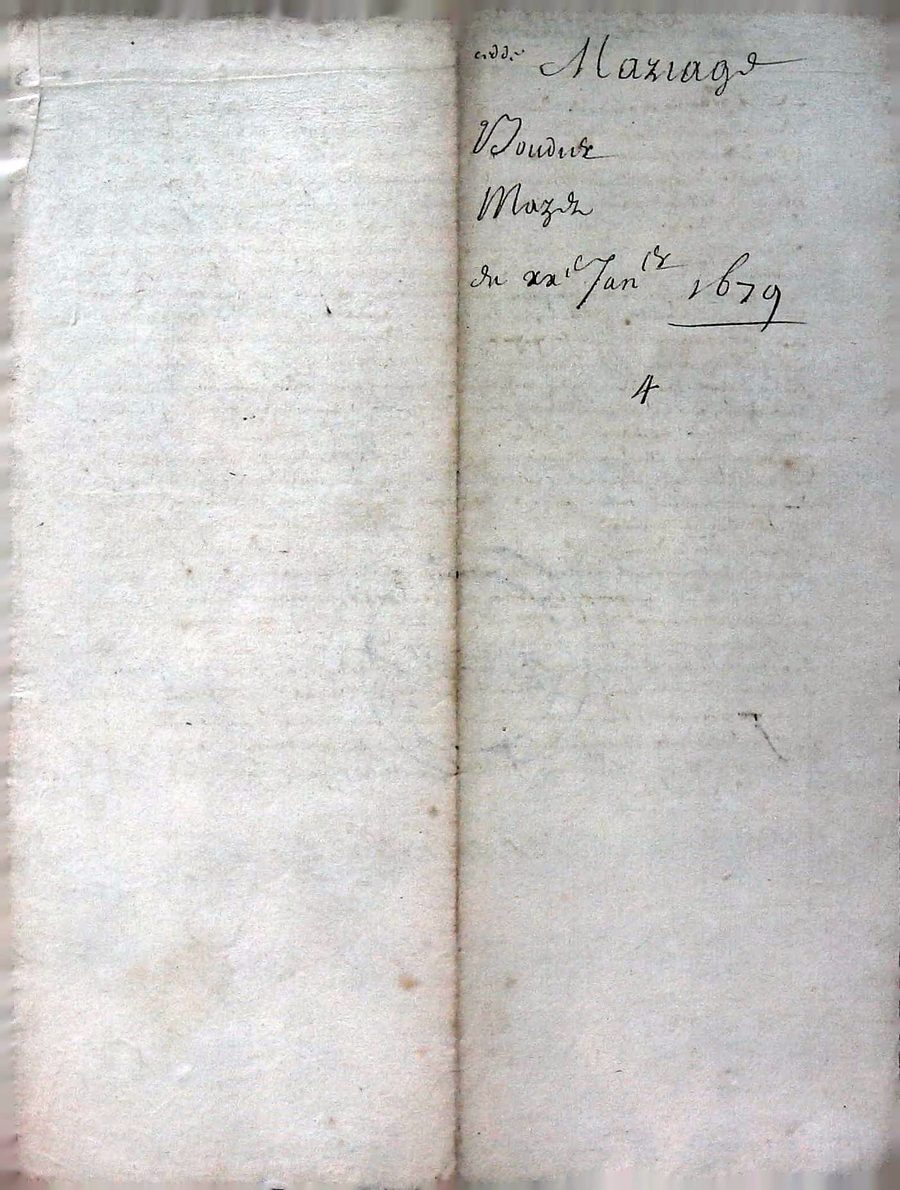 Mariage
Boudier
du xxi^e Jan^ier 1679
4